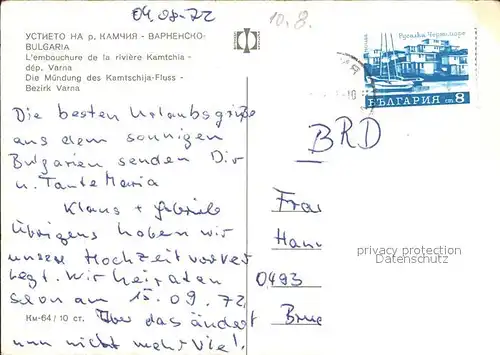 04.08.72
10.8.
УСТИЕТО НА р. КАМЧИЯ - ВАРНЕНСКО-
BULGARIA
L'embouchure de la rivière Kamtchia -
dép. Varna
Die Mündung des Kamtschija-Fluss -
Bezirk Varna
Русалка Черно море
БЪЛГАРИЯ ст 8
Die besten Urlaubsgrüße
aus dem sonnigen
Bulgarien senden Dir
u. Tante Maria
Klaus + Gabriele
Übrigens haben wir
unsere Hochzeit vorver
legt. Wir heiraten
schon am 15.09.72.
Aber das ändert
nun nicht mehr viel!
Км-64/10 ст.
BRD
Frau
Hann
0493
Brue
privacy protection
Datenschutz